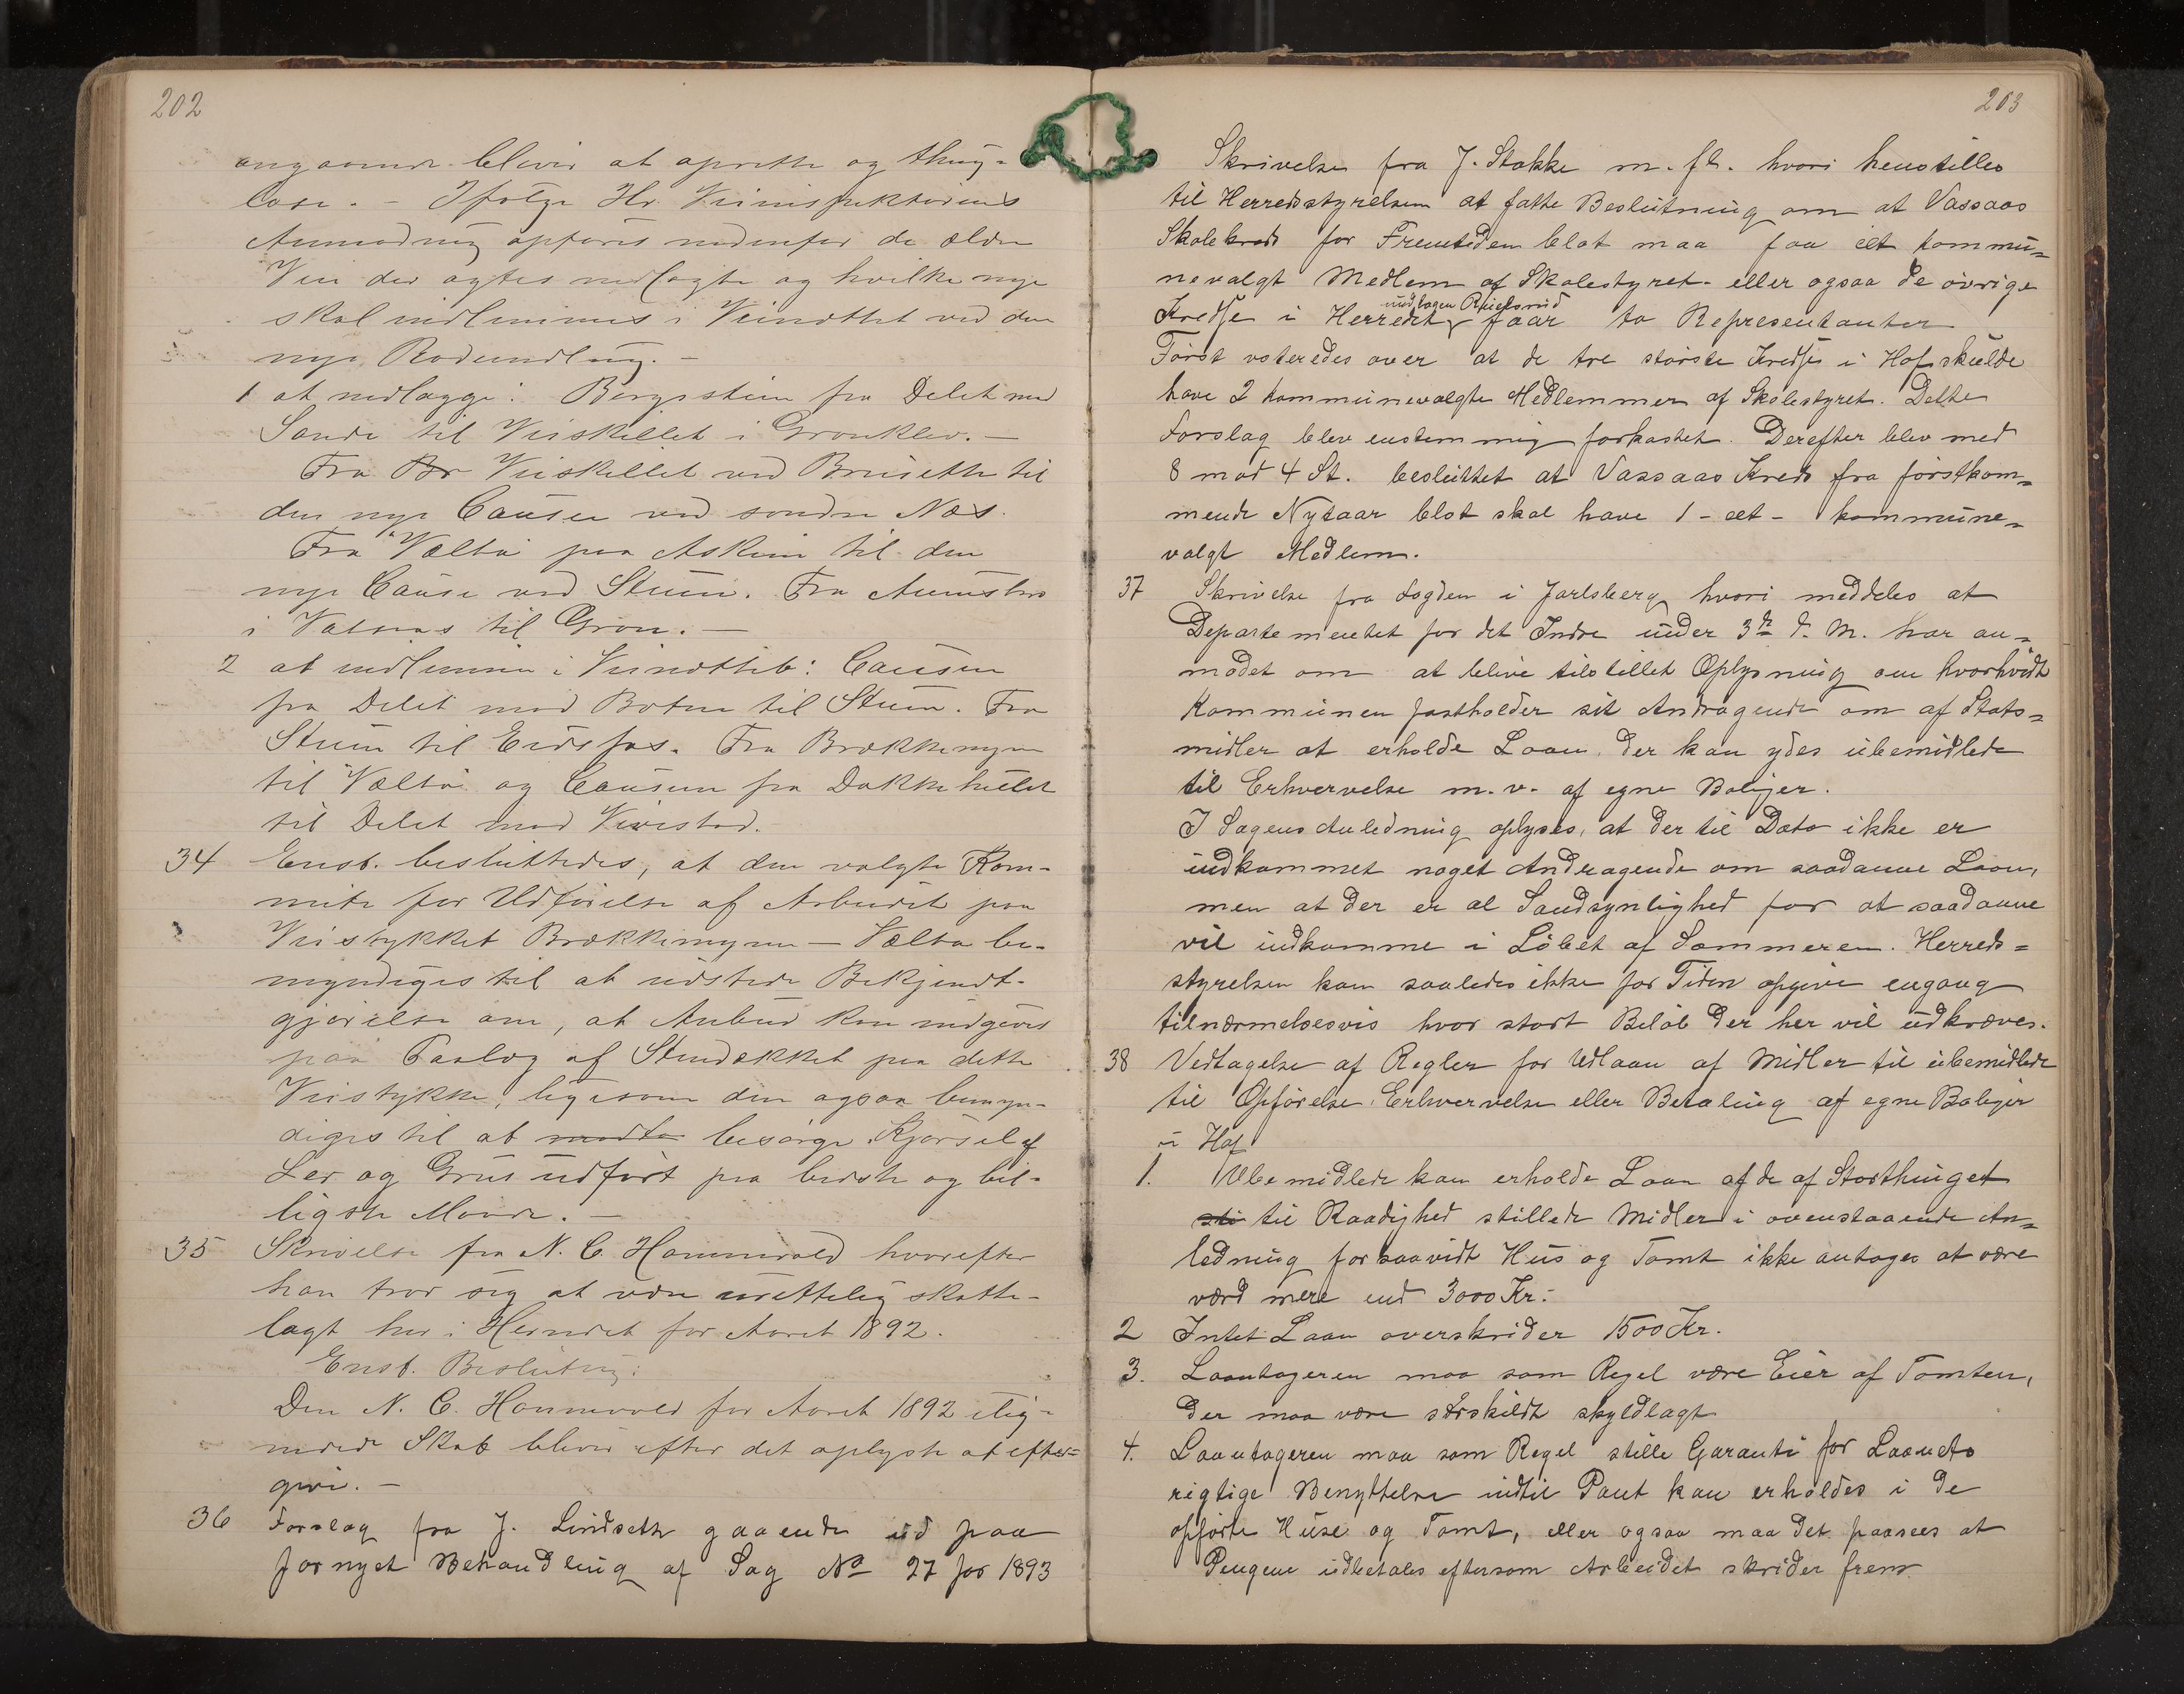 202
angaaende bliver at oprette og thing-
læse. – Ifølge Hr. Veiinspektørens
Anmodning opføres nedenfor de ældre
Veie der agtes nedlagte og hvilke nye
skal indlemmes i Veinættet ved den
nye Rodeindling. –
1 at nedlægge: Bergssteien fra Delet med
Sande til Veiskillet i Grønklev. –
Fra Br Veiskillet ved Bruserth til
den nye Causee ved søndre Næs.
Fra Vælta paa Askeim til den
nye Cause ved Steum. Fra
i Vatnaas til Grøn. –
2 at indlemme i Veinættet: Causeen
fra Delet med Botne til Steum. Fra
Steum til Eidsfos. Fra Brækkemyren
til Vælta og Causeen fra Dokkehullet
til Delet med Vivestad.
34 Enst. besluttedes, at den valgte Kom-
mite for Udførelse af Arbeidet paa
Veistykket Brækkemyren – Vælta be-
myndiges til at udstede Bekjendt-
gjørelse om, at Anbud kan indgives
paa Paalæg af Stendækket paa dette
Veistykke, ligesom den ogsaa bemyn-
diges til at modta besørge Kjørsel af
Ler og Grus udført paa bedste og bil-
ligste Maade. –
35 Skrivelse fra N. C. Hannevold hvorefter
han tror sig at være urettelig skatte-
lagt her i Herredet for Aaret 1892.
Enst. Beslutng:
Den N. C. Hannevold for Aaret 1892 ilig-
nede Skat bliver efter det oplyste at efter-
give. –
36 Forslag fra J. Lindseth gaaende ud paa
fornyet Behandling af Sag No 27 for 1893
203
Skrivelse fra J. Stokke m. fl. hvori henstilles
til Herredsstyrelsen at fatte Beslutning om at Vassaas
Skolekreds for Fremtiden blot maa faa eet kommu-
nevalgt Medlem af Skolestyret eller ogsaa de øvrige
undtagen
Kredse i Herredet faar to Representanter
Først voteredes over at de tre største Kredse i Hof skulde
have 2 kommunevalgte Medlemmer af Skolestyret. Dette
Forslag blev enstemmig forkastet. Derefter blev med
8 mod 4 St. besluttet at Vassaas Kreds fra førstkom-
mende Nytaar blot skal have 1 - eet - kommune-
valgt Medlem.
37 Skrivelse fra Fogden i Jarlsberg hvori meddeles at
Departementet for det Indre under 3de d. M. har an-
modet om at blive tilstillet Oplysning om hvorhvidt
Kommunen fastholder sit Andragende om af Stats-
midler at erholde Laan der kan ydes ubemidlede
til Erhvervelse m.v. af egne Boliger.
I Sagens Anledning oplyses, at der til Dato ikke er
indkommet noget Andragende om saadanne Laan,
men at der er al Sandsynlighed for at saadanne
vil indkomme i Løbet af Sommeren. Herreds-
styrelsen kan saaledes ikke for Tiden opgive engang
tilnærmelsesvis hvor stort Beløb der her vil udkræves.
38 Vedtagelse af Regler for Udlaan af Midler til ubemidlede
til Opførelse, Erhvervelse eller Betaling af egne Boliger
i Hof
1. Ubemidlede kan erholde Laan af de af Storthinget
sti til Raadighed stillede Midler i ovenstaaende An-
ledning forsaavidt Hus og Tomt ikke antages at være
værd mere end 3000 Kr.
2 Intet Laan overskrider 1500 Kr.
3. Laantageren maa som Regel være Eier af Tomten,
der maa være særskildt skyldlagt
4. Laantageren maa som Regel stille Garanti for Laanets
rigtige Benyttelse indtil Pant kan erholdes i de
opførte Huse og Tomt, eller ogsaa maa det paasees at
Pengene udbetales eftersom Arbeidet skrider frem